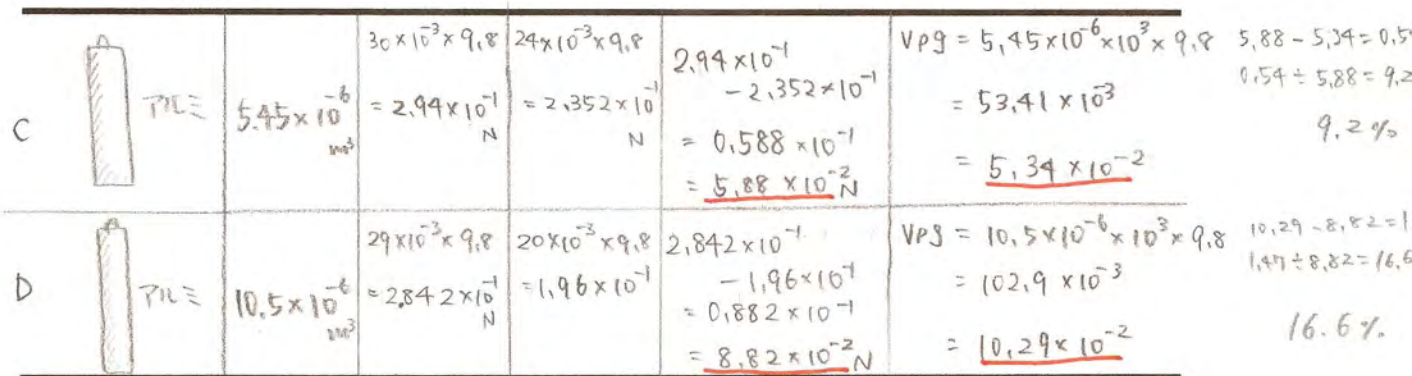 C
アルミ
5.45×10⁻⁶
m³
30×10⁻³×9.8
=2.94×10⁻¹
N
24×10⁻³×9.8
=2.352×10⁻¹
N
2.94×10⁻¹
-2.352×10⁻¹
= 0.588×10⁻¹
= 5.88×10⁻² N
Vρg = 5.45×10⁻⁶×10³×9.8
= 53.41×10⁻³
= 5.34×10⁻²
5.88-5.34=0.5
0.54÷5.88=9.2
9.2%
D
アルミ
10.5×10⁻⁶
m³
29×10⁻³×9.8
=2.842×10⁻¹
N
20×10⁻³×9.8
=1.96×10⁻¹
2.842×10⁻¹
-1.96×10⁻¹
= 0.882×10⁻¹
= 8.82×10⁻² N
Vρg = 10.5×10⁻⁶×10³×9.8
= 102.9×10⁻³
= 10.29×10⁻²
10.29-8.82=1
1.47÷8.82=16.6
16.6%